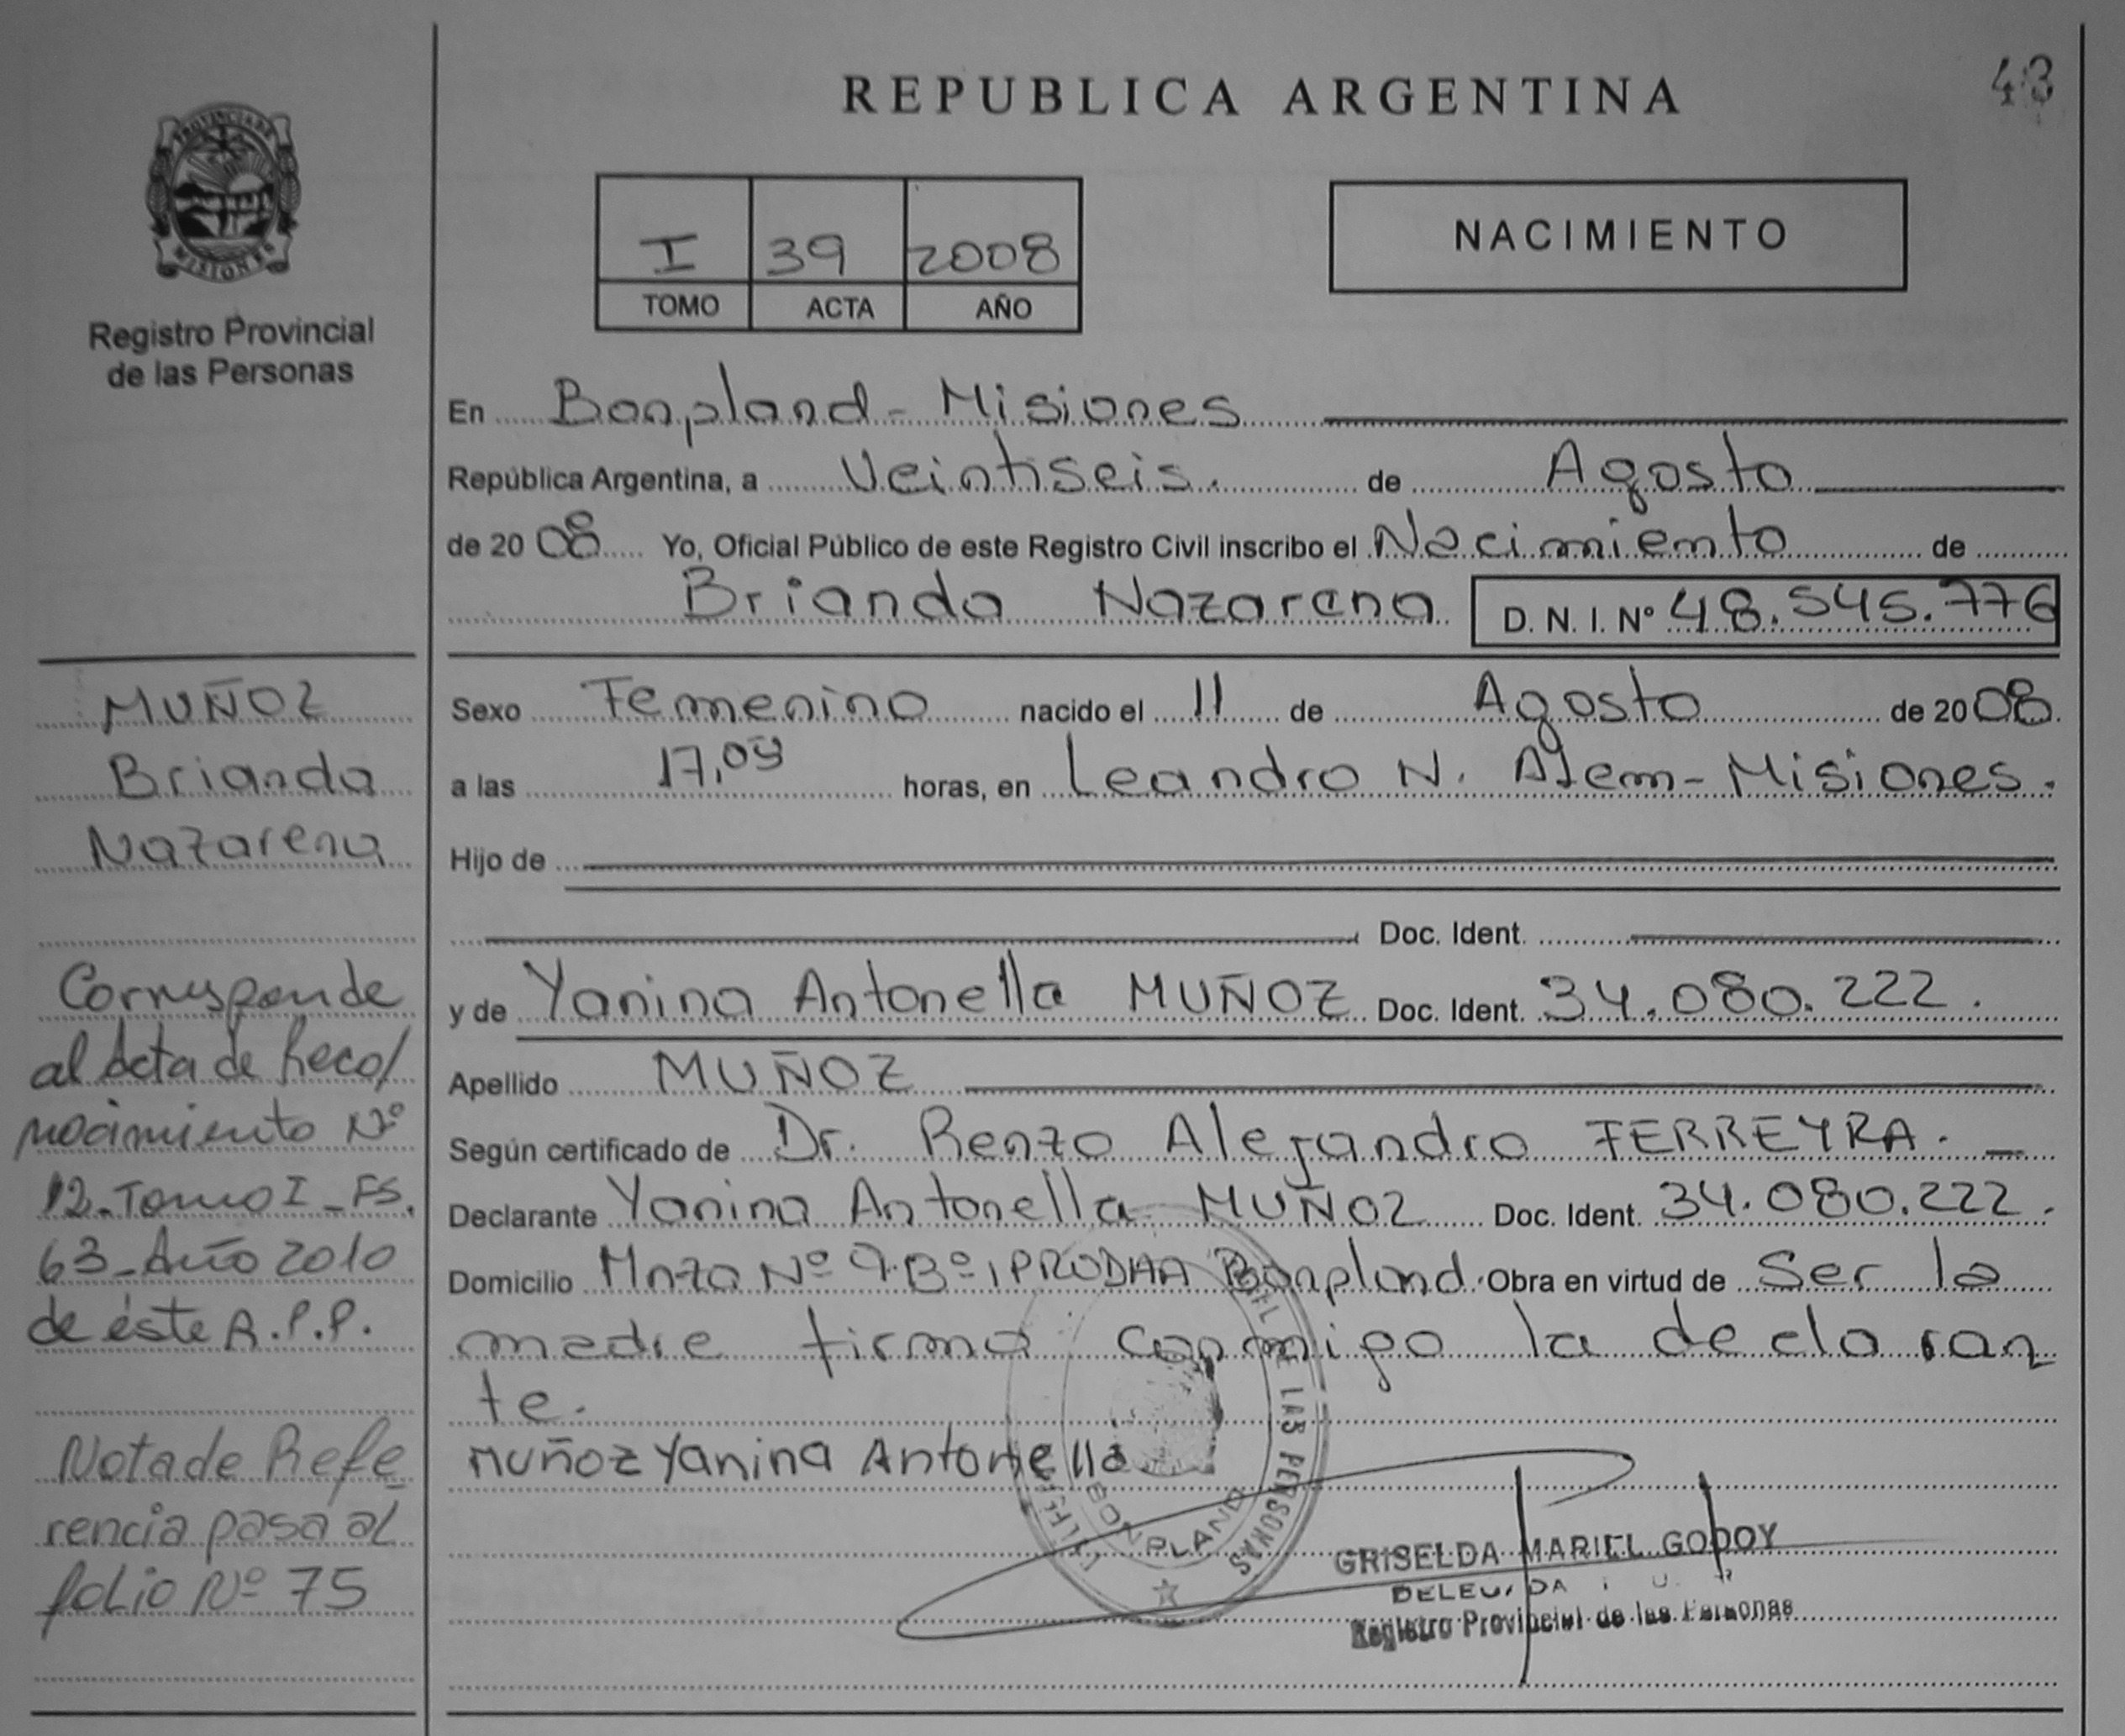 REPUBLICA ARGENTINA
43
PROVINCIA DE
MISIONES
Registro Provincial
de las Personas
I 39 2008
TOMO ACTA AÑO
NACIMIENTO
En Bonpland - Misiones
República Argentina, a Veintiseis. de Agosto
de 2008 Yo, Oficial Público de este Registro Civil inscribo el Nacimiento de
Brianda Nazarena D. N. I. Nº 48.545.776
Sexo Femenino nacido el 11 de Agosto de 2008
a las 17,09 horas, en Leandro N. Alem - Misiones.
Hijo de
Doc. Ident.
y de Yanina Antonella MUÑOZ Doc. Ident. 34.080.222.
Apellido MUÑOZ
Según certificado de Dr. Renzo Alejandro FERREYRA.
Declarante Yanina Antonella MUÑOZ Doc. Ident. 34.080.222.
Domicilio Mnza Nº 9. Bº IPRODHA Bonpland. Obra en virtud de Ser la
madre firma conmigo la declaran
te.
MUÑOZ Yanina Antonella
LAS PERSONAS
BONPLAND
GRISELDA MARIEL GODOY
Registro Provincial de las Personas
MUÑOZ
Brianda
Nazarena
Corresponde
al Acta de Reco/
nocimiento Nº
12 - Tomo I - FS.
63 - Año 2010
de éste R.P.P.
Nota de Refe
rencia pasa al
folio Nº 75